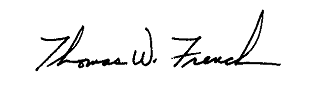 Thomas W. French